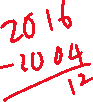 2016
-2004
12